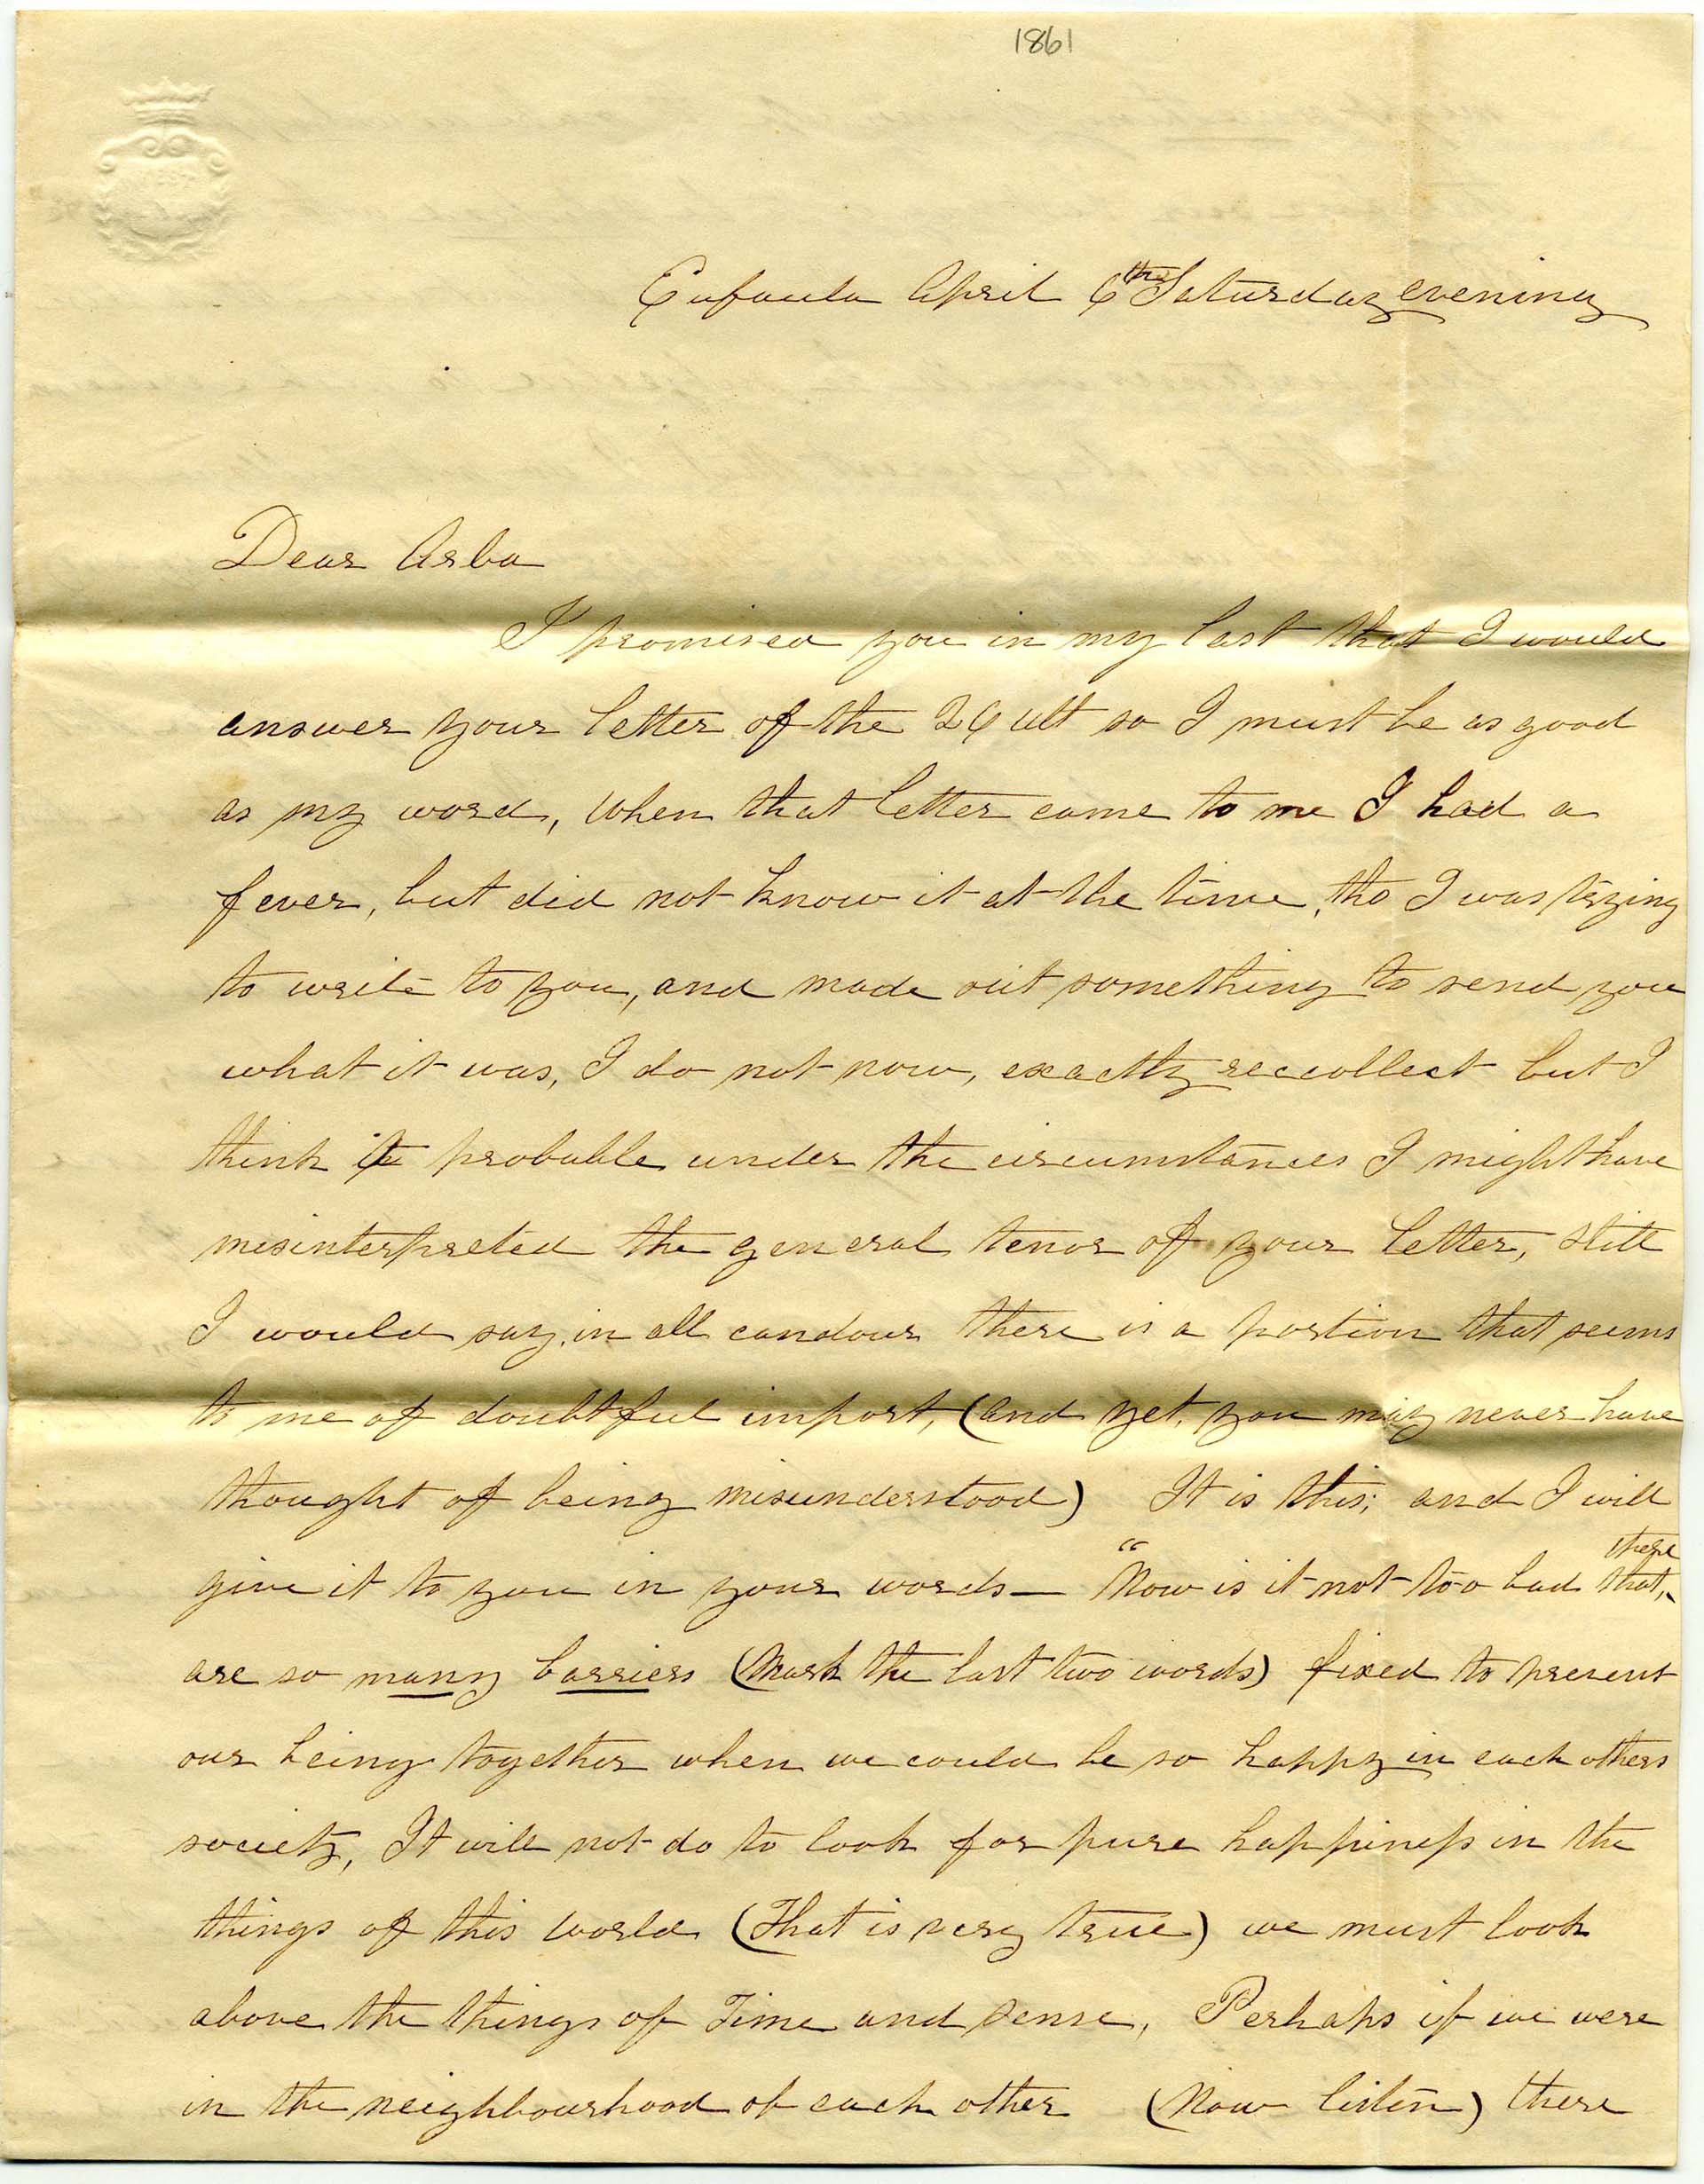 1861
Eufaula April 6th Saturday evening
Dear Arba
I promised you in my last that I would
answer your letter of the 26 ult so I must be as good
as my word, when that letter came to me I had a
fever, but did not know it at the time, tho I was trying
to write to you, and made out something to send you
what it was, I do not now, exactly reccollect but I
think it probable under the circumstances I might have
misinterpreted the general tenor of your letter, still
I would say, in all candour there is a portion that seems
to me of doubtful import, (and yet, you may never have
thought of being misunderstood) It is this; and I will
give it to you in your words— "Now is it not too bad that, there
are so many barriers (Mark the last two words) fixed to prevent
our being together when we could be so happy in each others
society, It will not do to look for pure happiness in the
things of this world (That is very true) we must look
above the things of Time and sense, Perhaps if we were
in the neighbourhood of each other (Now listen) there